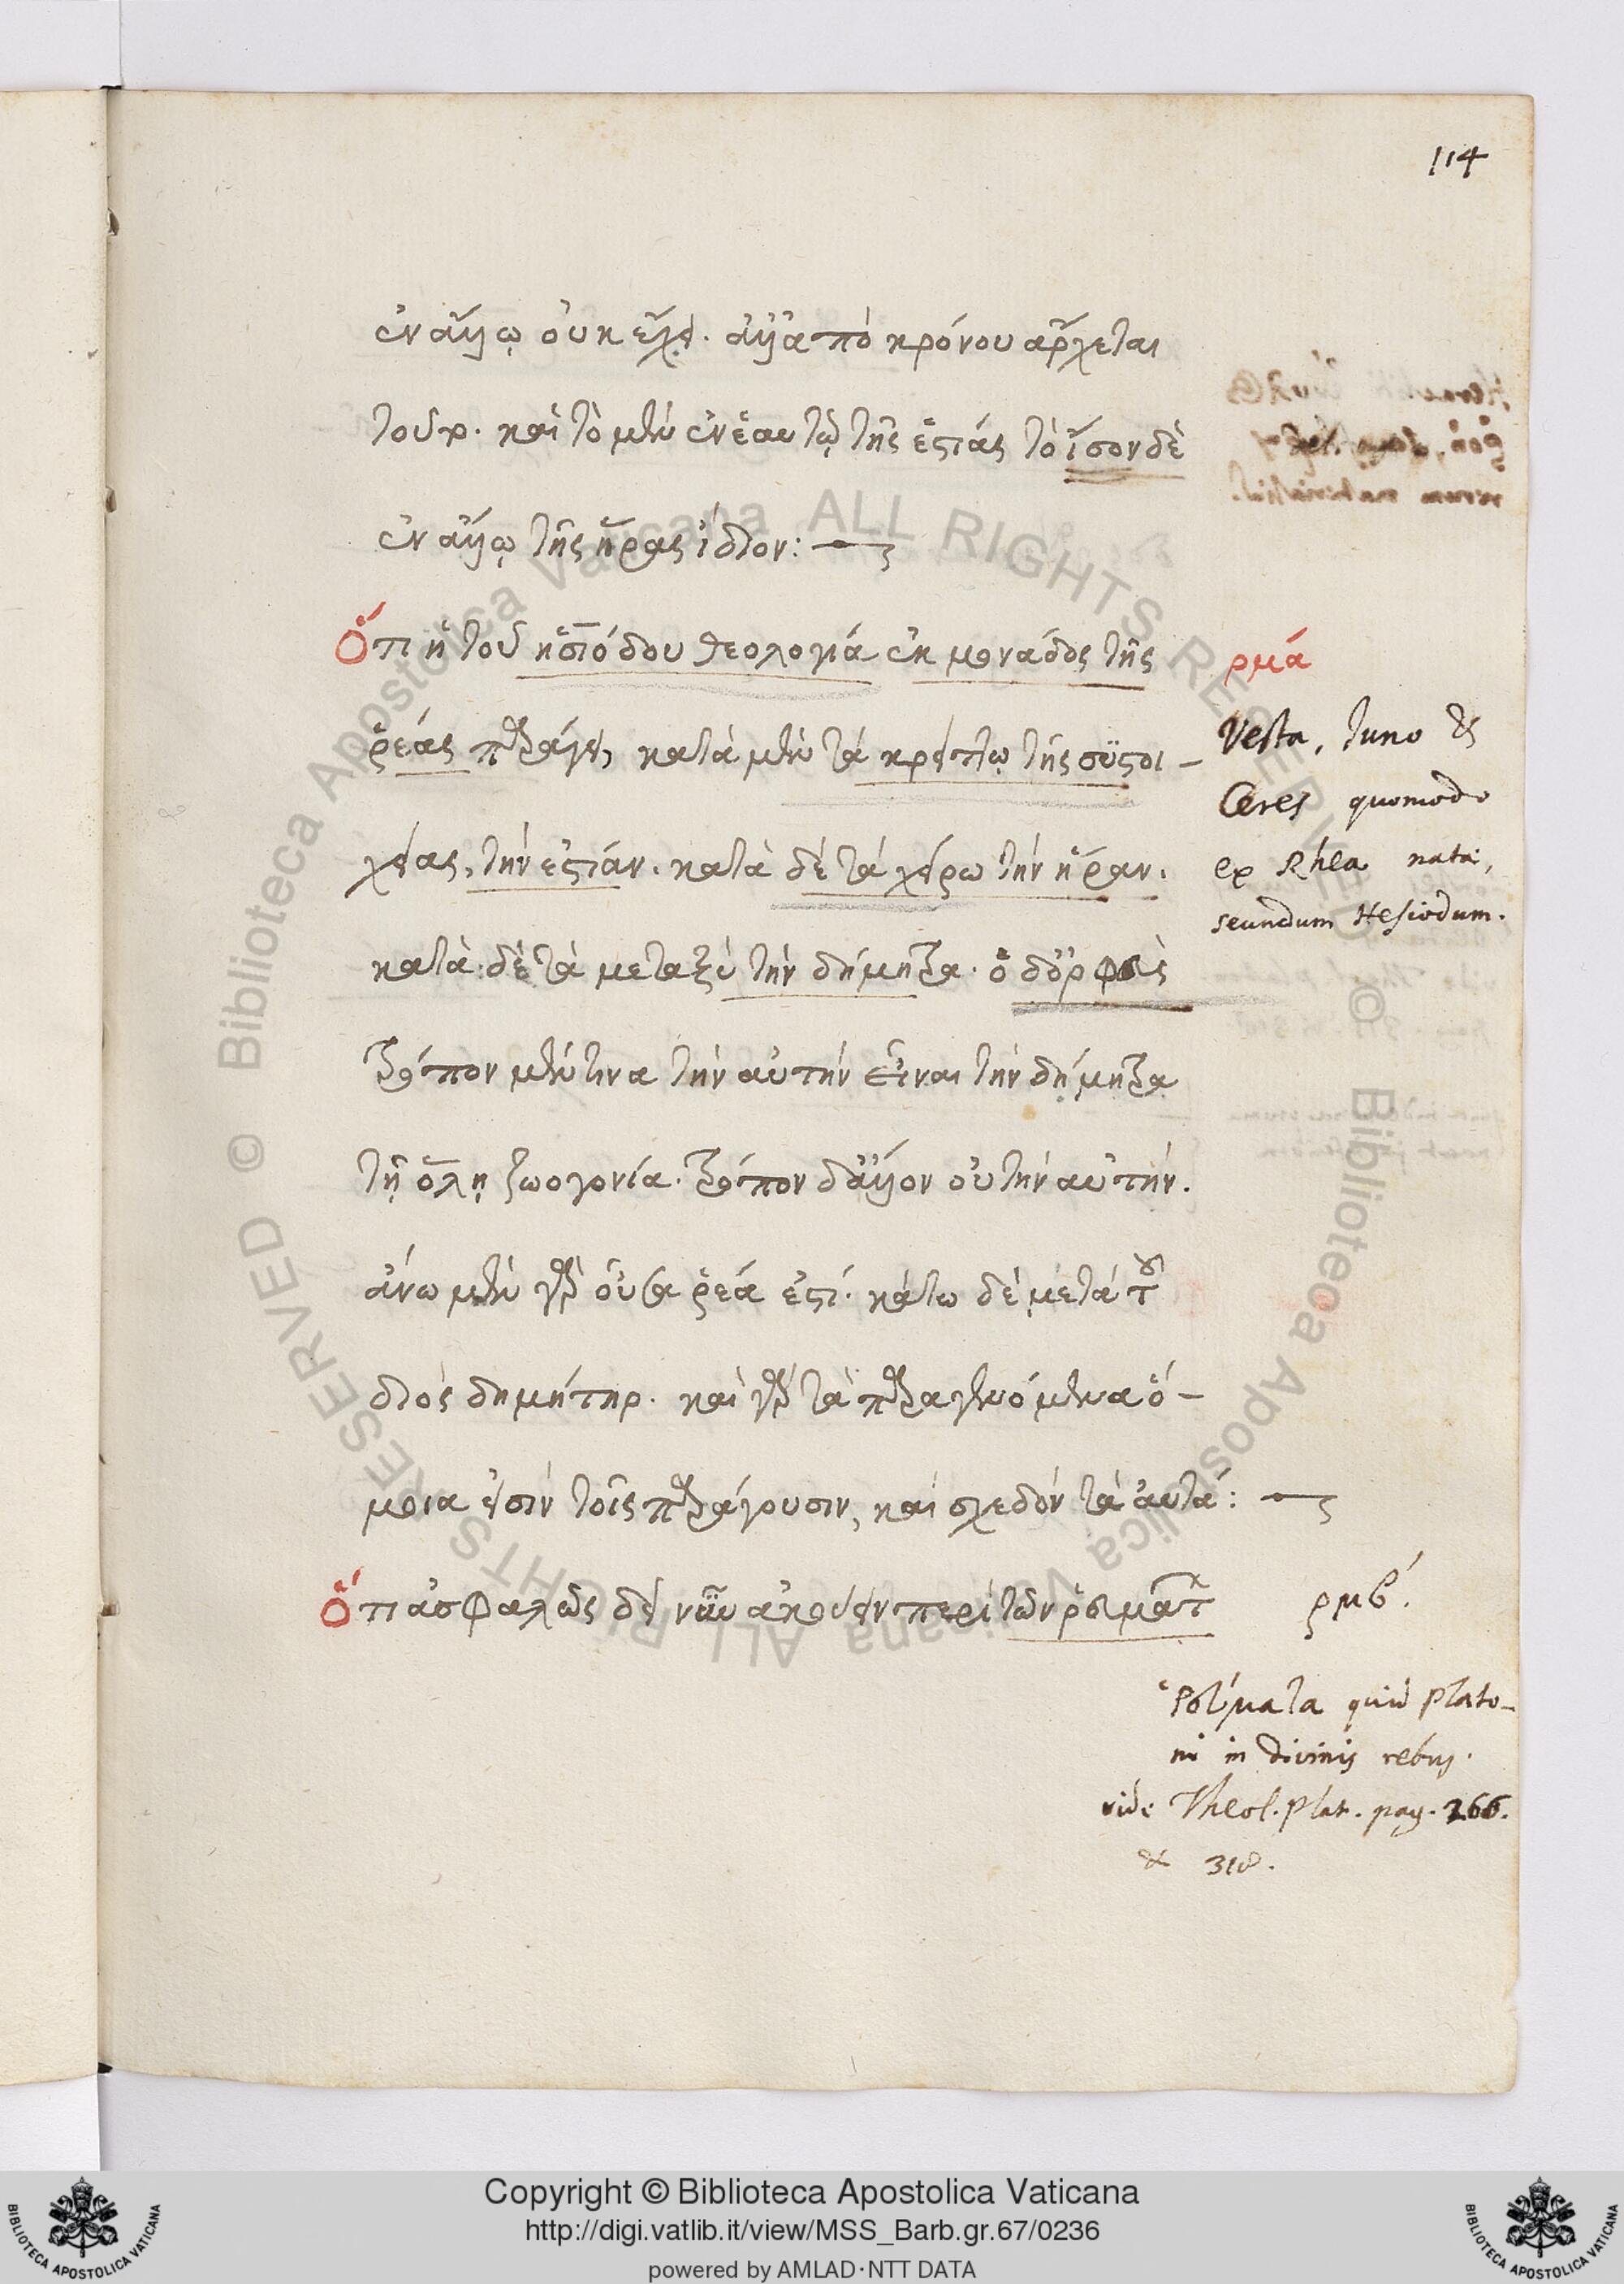 114
ἐν ἄλλῳ οὐκ εἶχε. ἀλλ' ἀπὸ κρόνου ἄρχεται
τοῦτο. καὶ τὸ μὲν ἐν ἑαυτῷ τῆς ἑστίας τὸ ἴσον δὲ
ἐν ἄλλῳ τῆς ἥρας ἴδιον:
Ὅτι ἡ τοῦ ἡσιόδου θεολογία ἐκ μονάδος τῆς
ῥέας παράγει, κατὰ μὲν τὰ κρείττω τῆς συστοι-
χείας, τὴν ἑστίαν. κατὰ δὲ τὰ χείρω τὴν ἥραν.
κατὰ δὲ τὰ μεταξὺ τὴν δήμητρα. ὁ δ' ὀρφεὺς
τρόπον μέν τινα τὴν αὐτὴν εἶναι τὴν δήμητρα
τῇ ὅλῃ ζωογονία. τρόπον δ' ἄλλον οὐ τὴν αὐτήν.
ἄνω μὲν γὰρ οὖσα ῥέα ἐστί. κάτω δὲ μετὰ τοῦ
διὸς δημήτηρ. καὶ γὰρ τὰ παραγενόμενα ὅ-
μοια εἰσὶν τοῖς παράγουσιν, καὶ σχεδὸν τὰ αὐτά:
Ὅτι ἀσφαλῶς δεῖ νῦν ἀκούειν περὶ τῶν ῥευμάτων
ρμά
Vesta, Iuno &
Ceres quomodo
ex Rhea nata,
secundum Hesiodum.
ρμβ.
Ῥεύματα quid Plato-
ni in divinis rebus.
vide Theol. Plat. pag. 266.
& 318.
Copyright © Biblioteca Apostolica Vaticana
http://digi.vatlib.it/view/MSS_Barb.gr.67/0236
powered by AMLAD·NTT DATA
BIBLIOTECA APOSTOLICA VATICANA
BIBLIOTECA APOSTOLICA VATICANA
© Biblioteca Apostolica Vaticana ALL RIGHTS RESERVED © Biblioteca Apostolica Vaticana ALL RIGHTS RESERVED